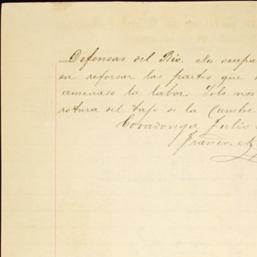 Defensas del Rio. Se ocupa
en reforsar las partes que
amenaso la labor. Solo nos
rotura del bajo de la Cumbre
Covadonga Julio
Franco. A